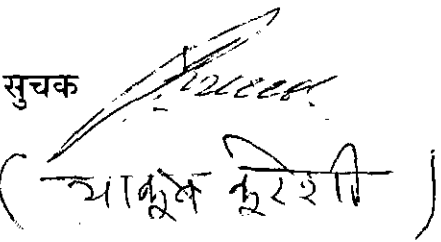 सुचक
( याकूब कूरेशी )